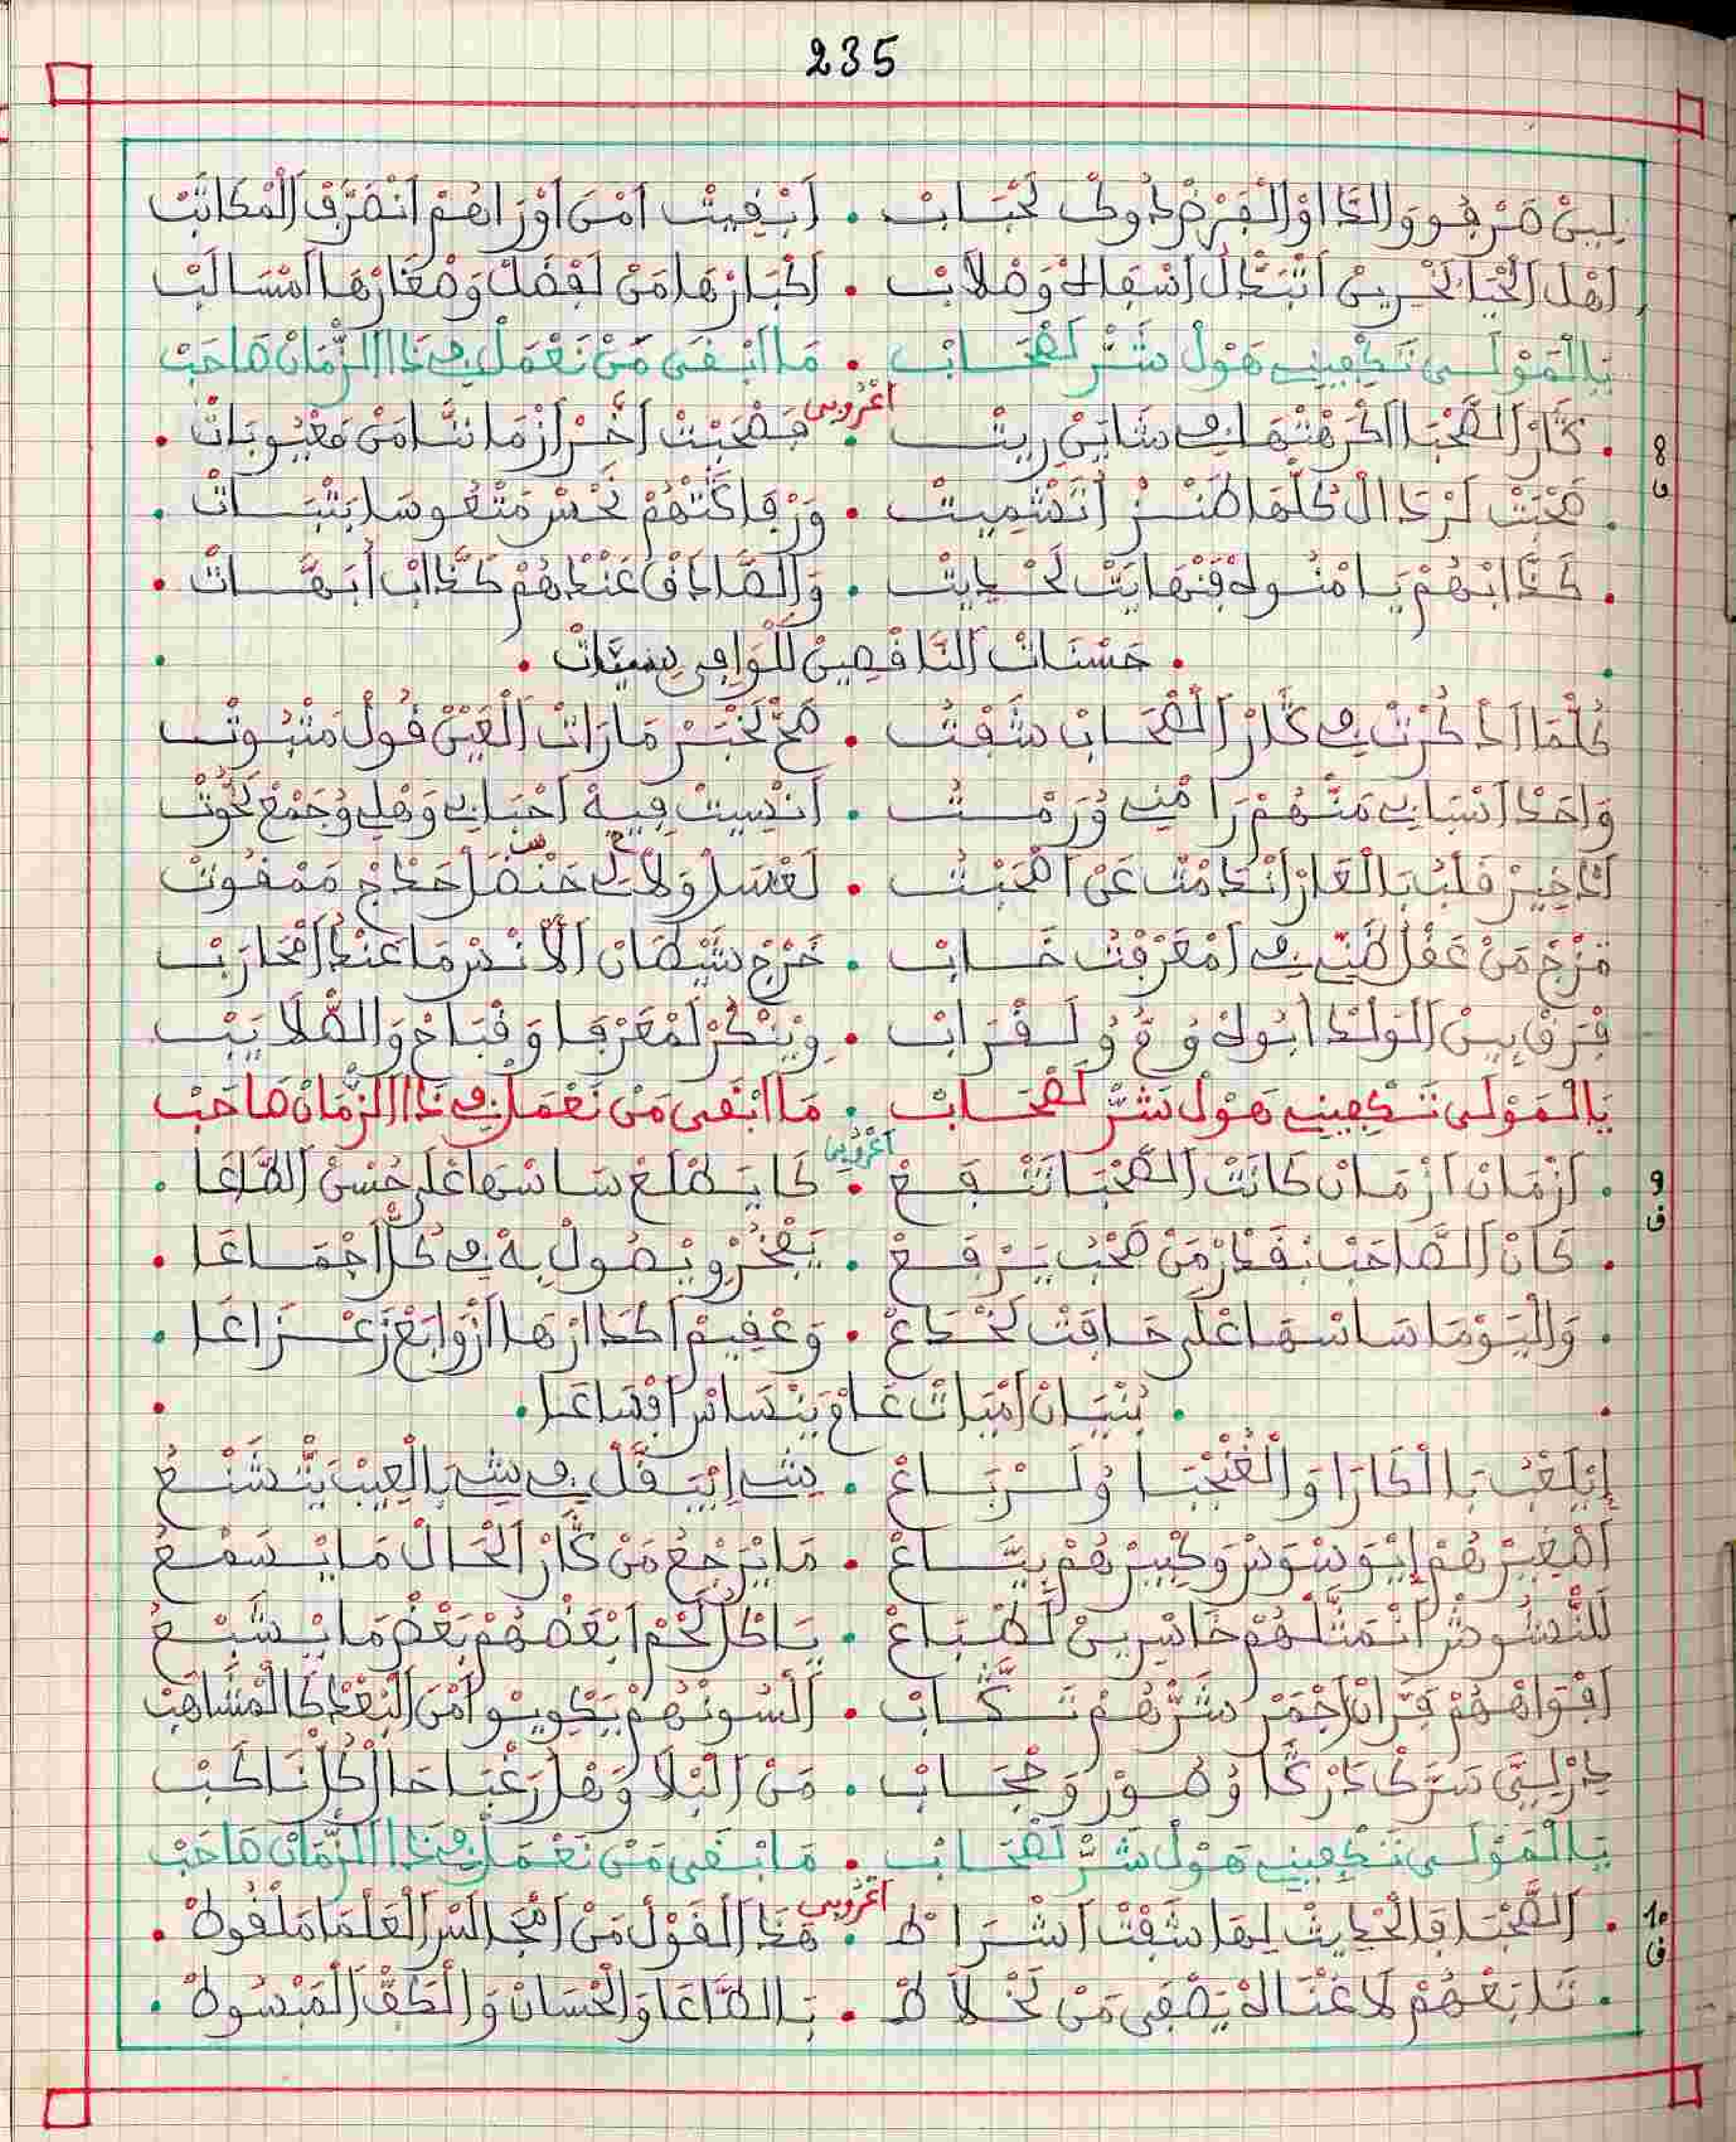 235
لِيسْ صَرْفُو وَالدَّا اوْ الْفَرْضْ دُوكْ لَحْبَابْ . ابْقِيتْ امْنْ اوْرَاهُمْ انْصَرَّفْ الْمْكَاتَبْ
اهْلْ الْحْيَا لَخْرِينْ اتْبَدَّالْ اسْفَاهْ وَصْلَابْ . اكْبَارْهَا مَنْ لَفْضَلْ وَصْغَارْهَا امْسَالَبْ
يَا الْمَوْلَى تَكْفِينِي هَوْلْ شَرّْ لَصْحَابْ . مَا ابْقَى مَنْ نَعْمَلْ فِي ذَا الزّْمَانْ صَاحَبْ
اعْرُوبِي
8 ف
. كَارْ الصَّحْبَا اكْرَهْتْهَا فِي شَايَنْ رِيتْ . فَصْحَبْتْ آخَرْ ازْمَانَّا مَنْ مَعْيُوبَاتْ .
. صَحْبَتْ لَرْدَالْ كُلّْهَا طَنْزْ اتَّشْمِيتْ . وَرْفَاكَتْهُمْ نَحْسْ مَتْعُوسَا بَتْبَاتْ .
. كَذَّابْهُمْ يَامْنُوهْ فَنْهَايَتْ لَحْدِيتْ . وَالصَّادَقْ عَنْدْهُمْ كَذَّابْ ابَهَّاتْ .
. حَسْنَاتْ النَّاقْصِينْ لَلْوَافِي سِيَّاتْ .
كُلّْمَا ادْكُرْتْ فِي كَارْ الصّْحَابْ شَفْتْ . صَحّْ لَخْبَرْ مَارَاتْ الْعَيْنْ قُولْ مَتْبُوتْ
وَاحَدْ اسْبَابِي مَنْهُمْ رَامْنِي وُرَمْتْ . انْسِيتْ فِيهْ احْبَابِي وَهْلِي وُجَمْعْ لَخُّوتْ
ادْخِيرْ قَلْبُ بَالْغَارْ انْدَامْتْ عَنْ اصْحَبْتْ . لَعْسَلْ وَلَّى لِي حَنْضَلْ حَدَجْ مَمْقُوتْ
مَزْجْ مَنْ عَقْلْ ظَنِّي فِي امْعَرْفْتُ خَابْ . خَرْجْ شَيْطَانْ الَانْسْ مَا عَنْدُ امْحَارَبْ
فْرَقْ بِينْ الْوَلْدْ ابُوهْ وُخُّ وُلَقْرَابْ . وِيَنْكُرْ لَمْعَرْفَا وَقْبَاحْ وَالصّْلَايَبْ
يَا الْمَوْلَى تَكْفِينِي هَوْلْ شَرّْ لَصْحَابْ . مَا ابْقَى مَنْ نَعْمَلْ فِي ذَا الزّْمَانْ صَاحَبْ
اعْرُوبِي
9 ف
. ازْمَانْ ازْمَانْ كَانَتْ الصَّحْبَا تَنْفَعْ . كَا يَطْلَعْ سَاسْهَا عْلَى حُسْنْ الطَّاعَا .
. كَانْ الصَّاحَبْ بْقَدْرْ مَنْ صَحْبُ يَرْفَعْ . يَفْخَرْ وِيْصُولْ بِهْ فِي كُلّْ اجْمَاعَا .
. وَالْيَوْمَا سَاسْهَا عْلَى حَافَتْ لَخْدَعْ . وَعْقِيمْ اكْدَارْهَا ازْوَابَعْ زَعْزَاعَا .
. بُنْيَانْ امْيَاتْ عَامْ يَنْسَاسْ افْسَاعَا .
إيْلَعْبُ بَالْكَارَا وَالْغُنْجْبَا وُلَرْبَاعْ . شِي إيْبَقَّلْ فِي شِي بَالْعِيبْ يْتْشَنَّعْ
اصْغِيرْهُمْ إيْوَسْوَسْ وَكْبِيرْهُمْ بِيَّاعْ . مَا يَرْجَعْ مَنْ كَارْ الْحَالْ مَا يَسْمَعْ
لَلنّْشُوشْ انْمَتَّلْهُمْ خَاسْرِينْ لَطْبَاعْ . يَاكُلْ لَحْمْ ابْعَضْهُمْ بَعْضْ مَا يَشْبَعْ
افْوَاهْهُمْ فَرَّانْ اجْمَرْ شَرّْهُمْ تَكَّابْ . الْسُونْهُمْ يَكْوِيوْ امْنْ الْبَعْدْ كَالْمْشَاهَبْ
دْرْلِيَّ سَرَّكْ دَرْكَا وُهُورْ وَحْجَابْ . مَنْ الْبْلَا وَهْلْ رَغْبَا حَا الْكُلّْ نَاكَبْ
يَا الْمَوْلَى تَكْفِينِي هَوْلْ شَرّْ لَصْحَابْ . مَا ابْقَى مَنْ نَعْمَلْ فِي ذَا الزّْمَانْ صَاحَبْ
اعْرُوبِي
10 ف
. الصَّحْبَا فَالْحْدِيتْ لِهَا شَفْتْ اشْرَاطْ . هَذَا الْقَوْلْ مَنْ امْجَالَسْ الْعَلْمَا مَلْقُوطْ .
. تَابَعْهُمْ لَا غْنَاهْ يَصْفَى مَنْ لَخْلَاطْ . بَالطَّاعَا وَالْحْسَانْ وَالْكَفّْ الْمَبْسُوطْ .